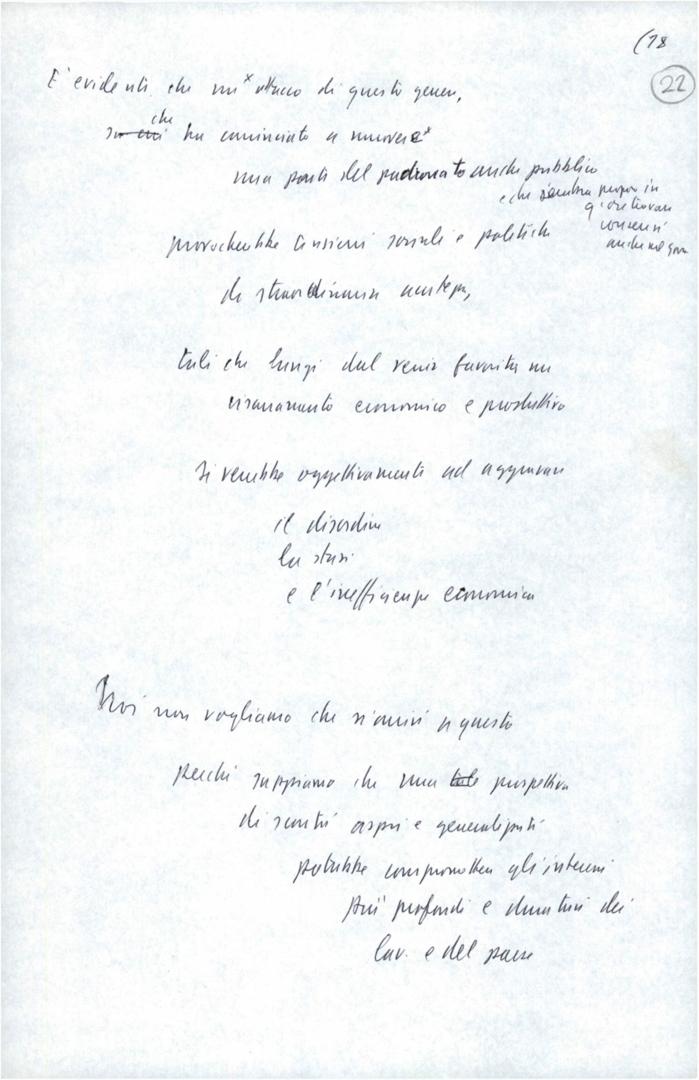 (18
22
E' evidente che un x attacco di questo genere,
su cui che ha cominciato a muovere x
una parte del padronato anche pubblico
e che sembra proprio in
q. ore trovare
consensi
anche nel gov
provocherebbe tensioni sociali e politiche
di straordinaria asprezza,
tali che lungi dal venir favorito un
risanamento economico e produttivo
si verrebbe oggettivamente ad aggravare
il disordine
la stasi
e l'inefficienza economica
Noi non vogliamo che si arrivi a questo
perché sappiamo che una tale prospettiva
di scontri aspri e generalizzati
potrebbe compromettere gli interessi
più profondi e duraturi dei
lav. e del paese